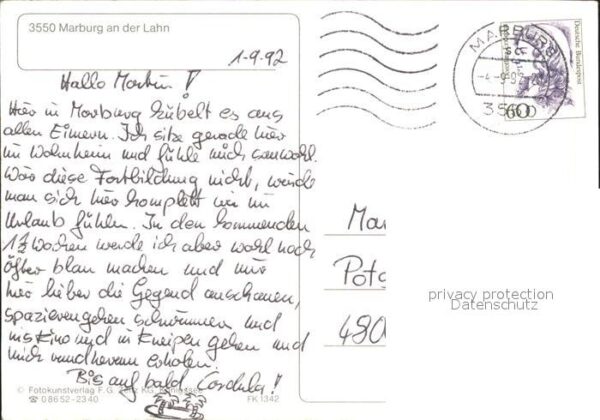 3550 Marburg an der Lahn
1-9.92
Hallo Martin!
Hier in Marburg kübelt es aus
allen Eimern. Ich sitze gerade hier
im Wohnheim und fühle mich sauwohl.
Wär diese Fortbildung nicht, würde
man sich hier komplett wie im
Urlaub fühlen. In den kommenden
1½ Wochen werde ich aber wohl noch
öfter blau machen und mir
hier lieber die Gegend anschauen,
spazierengehen schwimmen und
ins Kino und in Kneipen gehen und
mich rundherum erholen.
Bis auf bald Cordula!
© Fotokunstverlag F.G.
☎ 08652-2340
FK 1342
MARBURG
-4.-9.92
Deutsche Bundespost
60
Mar
Pots
480
privacy protection
Datenschutz